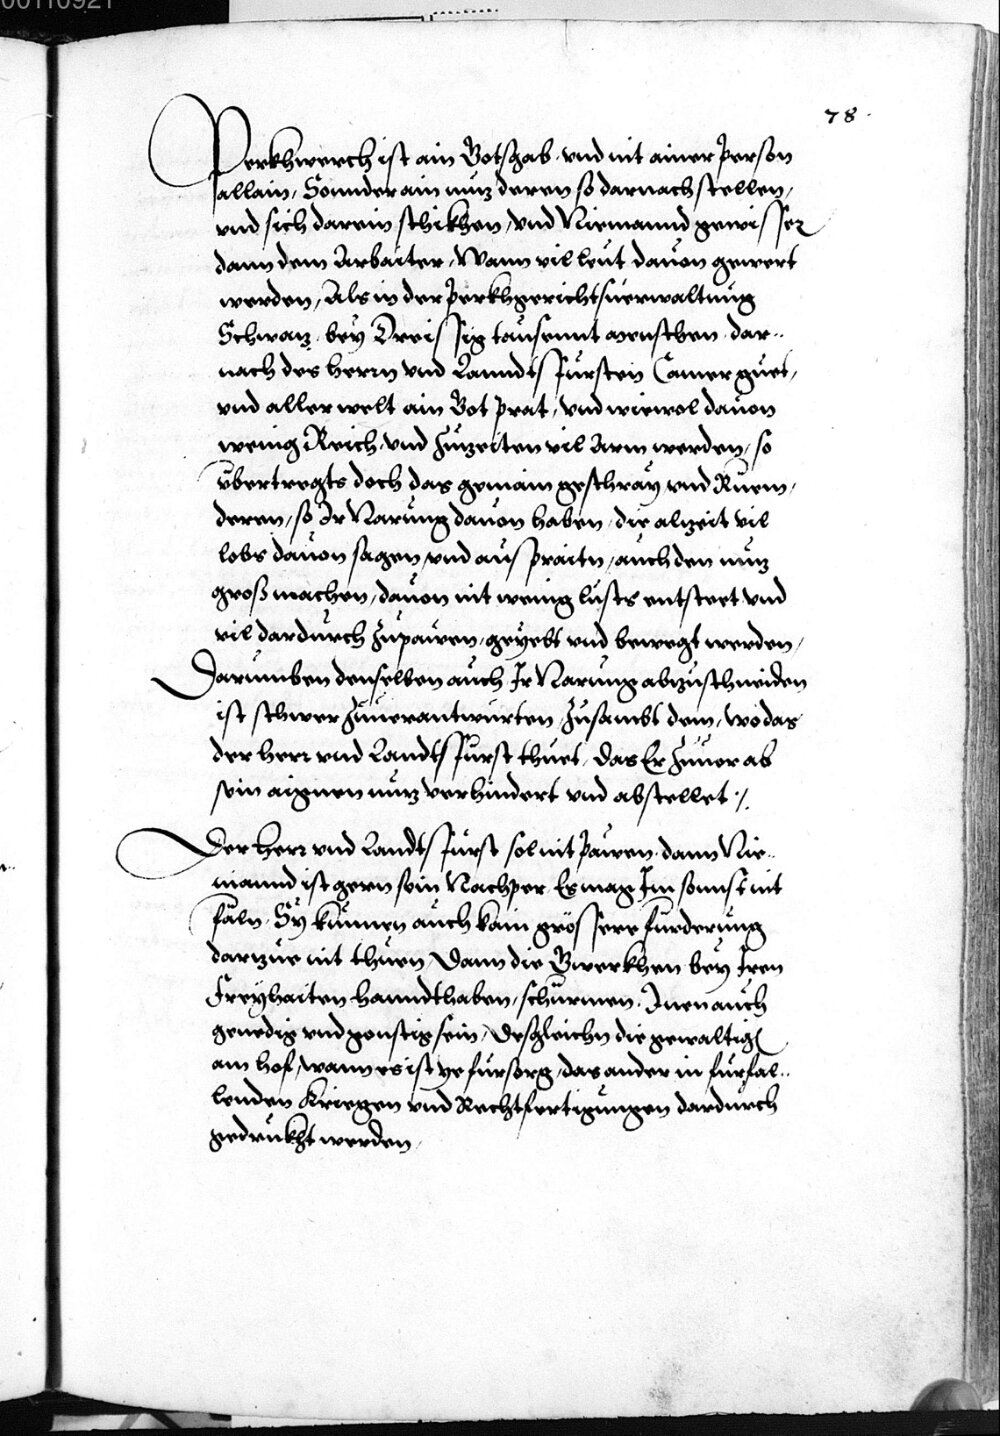 00110921
78.
Perkhwerch ist ain Gotsgab, vnd nit ainer Person
allain, Sonnder ain nuz deren so darnach stellen,
vnd sich darein schikhen, vnd Niemannd gewisser
dann dem Arbaiter, Wann vil leut dauon gewert
werden, Als in der Perkhgerichtsverwaltung
Schwaz, bey Dreissig tausennt menschen, dar-
nach des herrn vnd Lanndtsfürsten Camerguet,
vnd aller welt ain Got prat, vnd wiewol dauon
wenig Reich, vnd Zuzeiten vil Arm werden, so
vbertregts doch das gemain geschray, vnd Ruem,
deren, so Ir Narung dauon haben, die alzeit vil
lobs dauon sagen, vnd auspraitn, auch den nuz
gross machen, dauon nit wenig lusts entsteet vnd
vil dardurch Zupawen, geyebt vnd bewegt werden,
Darumben denselben auch Ir Narung abzuschneiden
ist schwer Zuuerantwurten, Zusambt dem, wo das
der herr vnd Landtsfürst thuet, das Er Zuuor ab
sein aignen nuz verhindert vnd abstellet ./.
Der herr vnd Landtsfürst sol nit Pawen, dann Nie-
mannd ist gern sein Nachper Es mag Im sonnst nit
faln, Sy kunnen auch kain grössere furderung
darzue nit thuen, Dann die Gwerkhen bey Iren
Freyhaiten hanndthaben, schürmen, Inen auch
genedig vnd gonstig sein, Desgleichn die gewaltign
am hof, wann es ist ye fürsorg, das ander in fürfal-
lenden Kriegen vnd Rechtfertigungen dardurch
gedrukht werden,